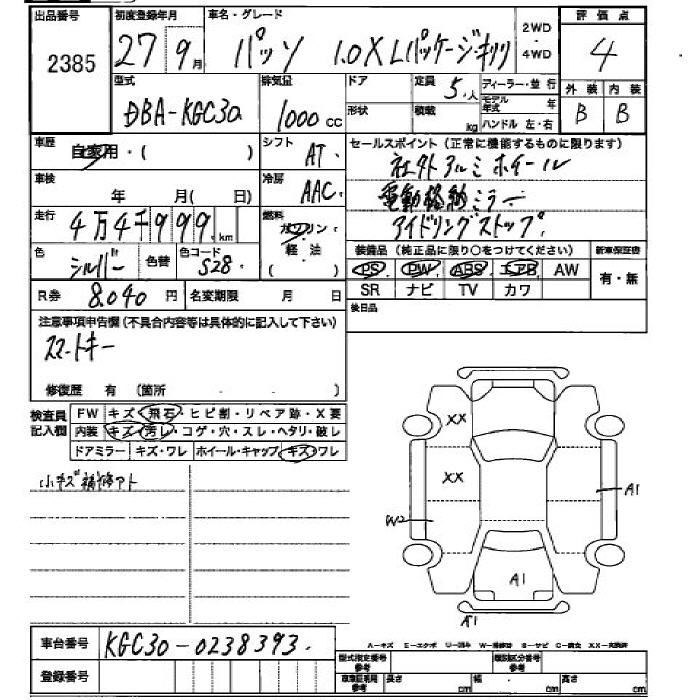 出品番号 初度登録年月 車名・グレード 2WD・4WD 評価点
2385 27 9月 パッソ 1.0XLパッケージキリリ 4
型式 排気量 ドア 定員 5人 ディーラー・並行 外装 内装
DBA-KGC30 1000cc 形状 積載 kg モデル年式 年 B B
ハンドル 左・右
車歴 自家用・( ) シフト AT. セールスポイント(正常に機能するものに限ります)
社外アルミホイール
車検 年 月(日) 冷房 AAC. 電動格納ミラー
走行 4万4千999.km 燃料 ガソリン・軽・( )油 アイドリングストップ.
色 シルバー 色替 色コード S28. 装備品(純正品に限り○をつけてください) 新車保証書
PS PW ABS エアB AW 有・無
R券 8.040円 名変期限 月 日 SR ナビ TV カワ
注意事項申告欄(不具合内容等は具体的に記入して下さい) 後日品
スマートキー
修復歴 有 (箇所 ・ )
検査員記入欄 FW キズ・飛石・ヒビ割・リペア跡・X要
内装 キズ・汚レ・コゲ・穴・スレ・ヘタリ・破レ
ドアミラー キズ・ワレ ホイール・キャップ キズ・ワレ
小キズ補修アト
XX
XX
A1
W2
A1
A1
車台番号 KGC30-0238393.
A-キズ E-エクボ U-凹ミ W-補修跡 S-サビ C-腐食 XX-交換済
登録番号 型式指定番号参考 類別区分番号参考
車庫証明用参考 長さ cm 幅 cm 高さ cm